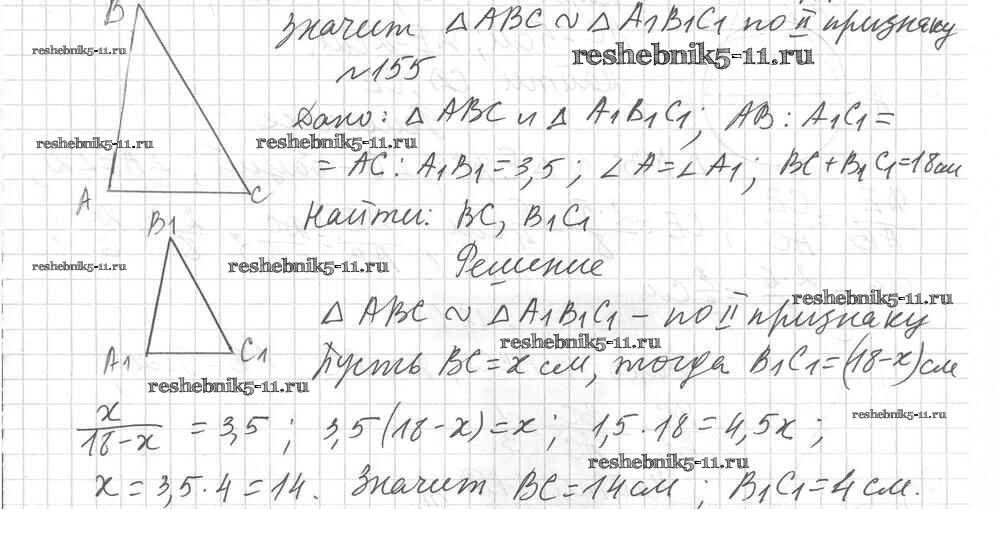 B
Значит △ ABC ~ △ A1B1C1 по II признаку
reshebnik5-11.ru
reshebnik5-11.ru
№155
Дано: △ ABC и △ A1B1C1; AB : A1C1 =
reshebnik5-11.ru
reshebnik5-11.ru
= AC : A1B1 = 3,5; ∠A = ∠A1; BC + B1C1 = 18 см
A
C
Найти: BC, B1C1
B1
reshebnik5-11.ru
reshebnik5-11.ru
Решение
reshebnik5-11.ru
△ ABC ~ △ A1B1C1 – по II признаку
reshebnik5-11.ru
A1
C1
Пусть BC = x см, тогда B1C1 = (18-x) см
reshebnik5-11.ru
reshebnik5-11.ru
x/18-x = 3,5; 3,5(18-x) = x; 1,5·18 = 4,5x;
reshebnik5-11.ru
x = 3,5·4 = 14. Значит BC = 14 см; B1C1 = 4 см.